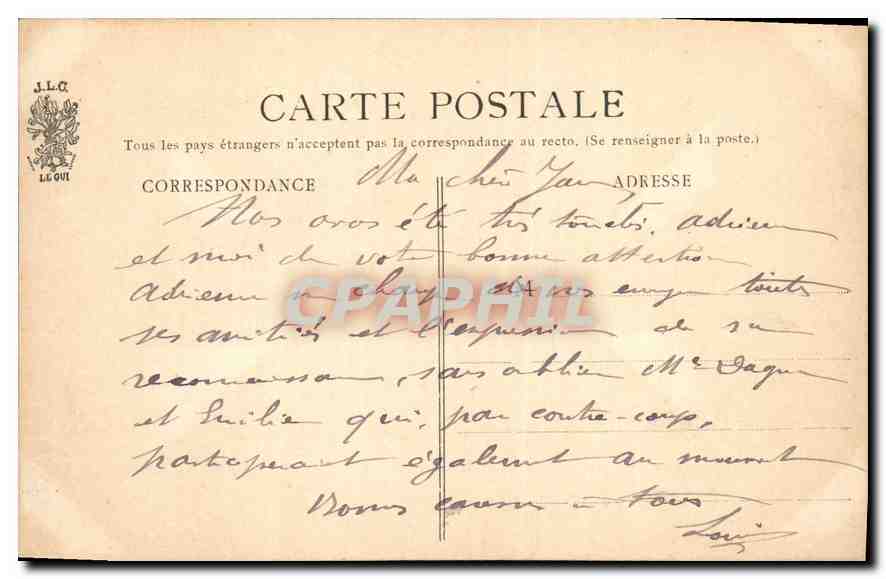 J.L.C.
LE GUI
CARTE POSTALE
Tous les pays étrangers n'acceptent pas la correspondance au recto. (Se renseigner à la poste.)
CORRESPONDANCE
ADRESSE
Ma chère
Nos avons été très touchés, Adrienne
et moi de votre bonne attention
Adrienne me charge de vous envoyer toutes
ses amitiés et l'expression de sa
reconnaissance, sans oublier Mr
et Emilie qui, par contre-coup,
participeront également au moment
Bonnes à tous
Louis
CPAPHIL